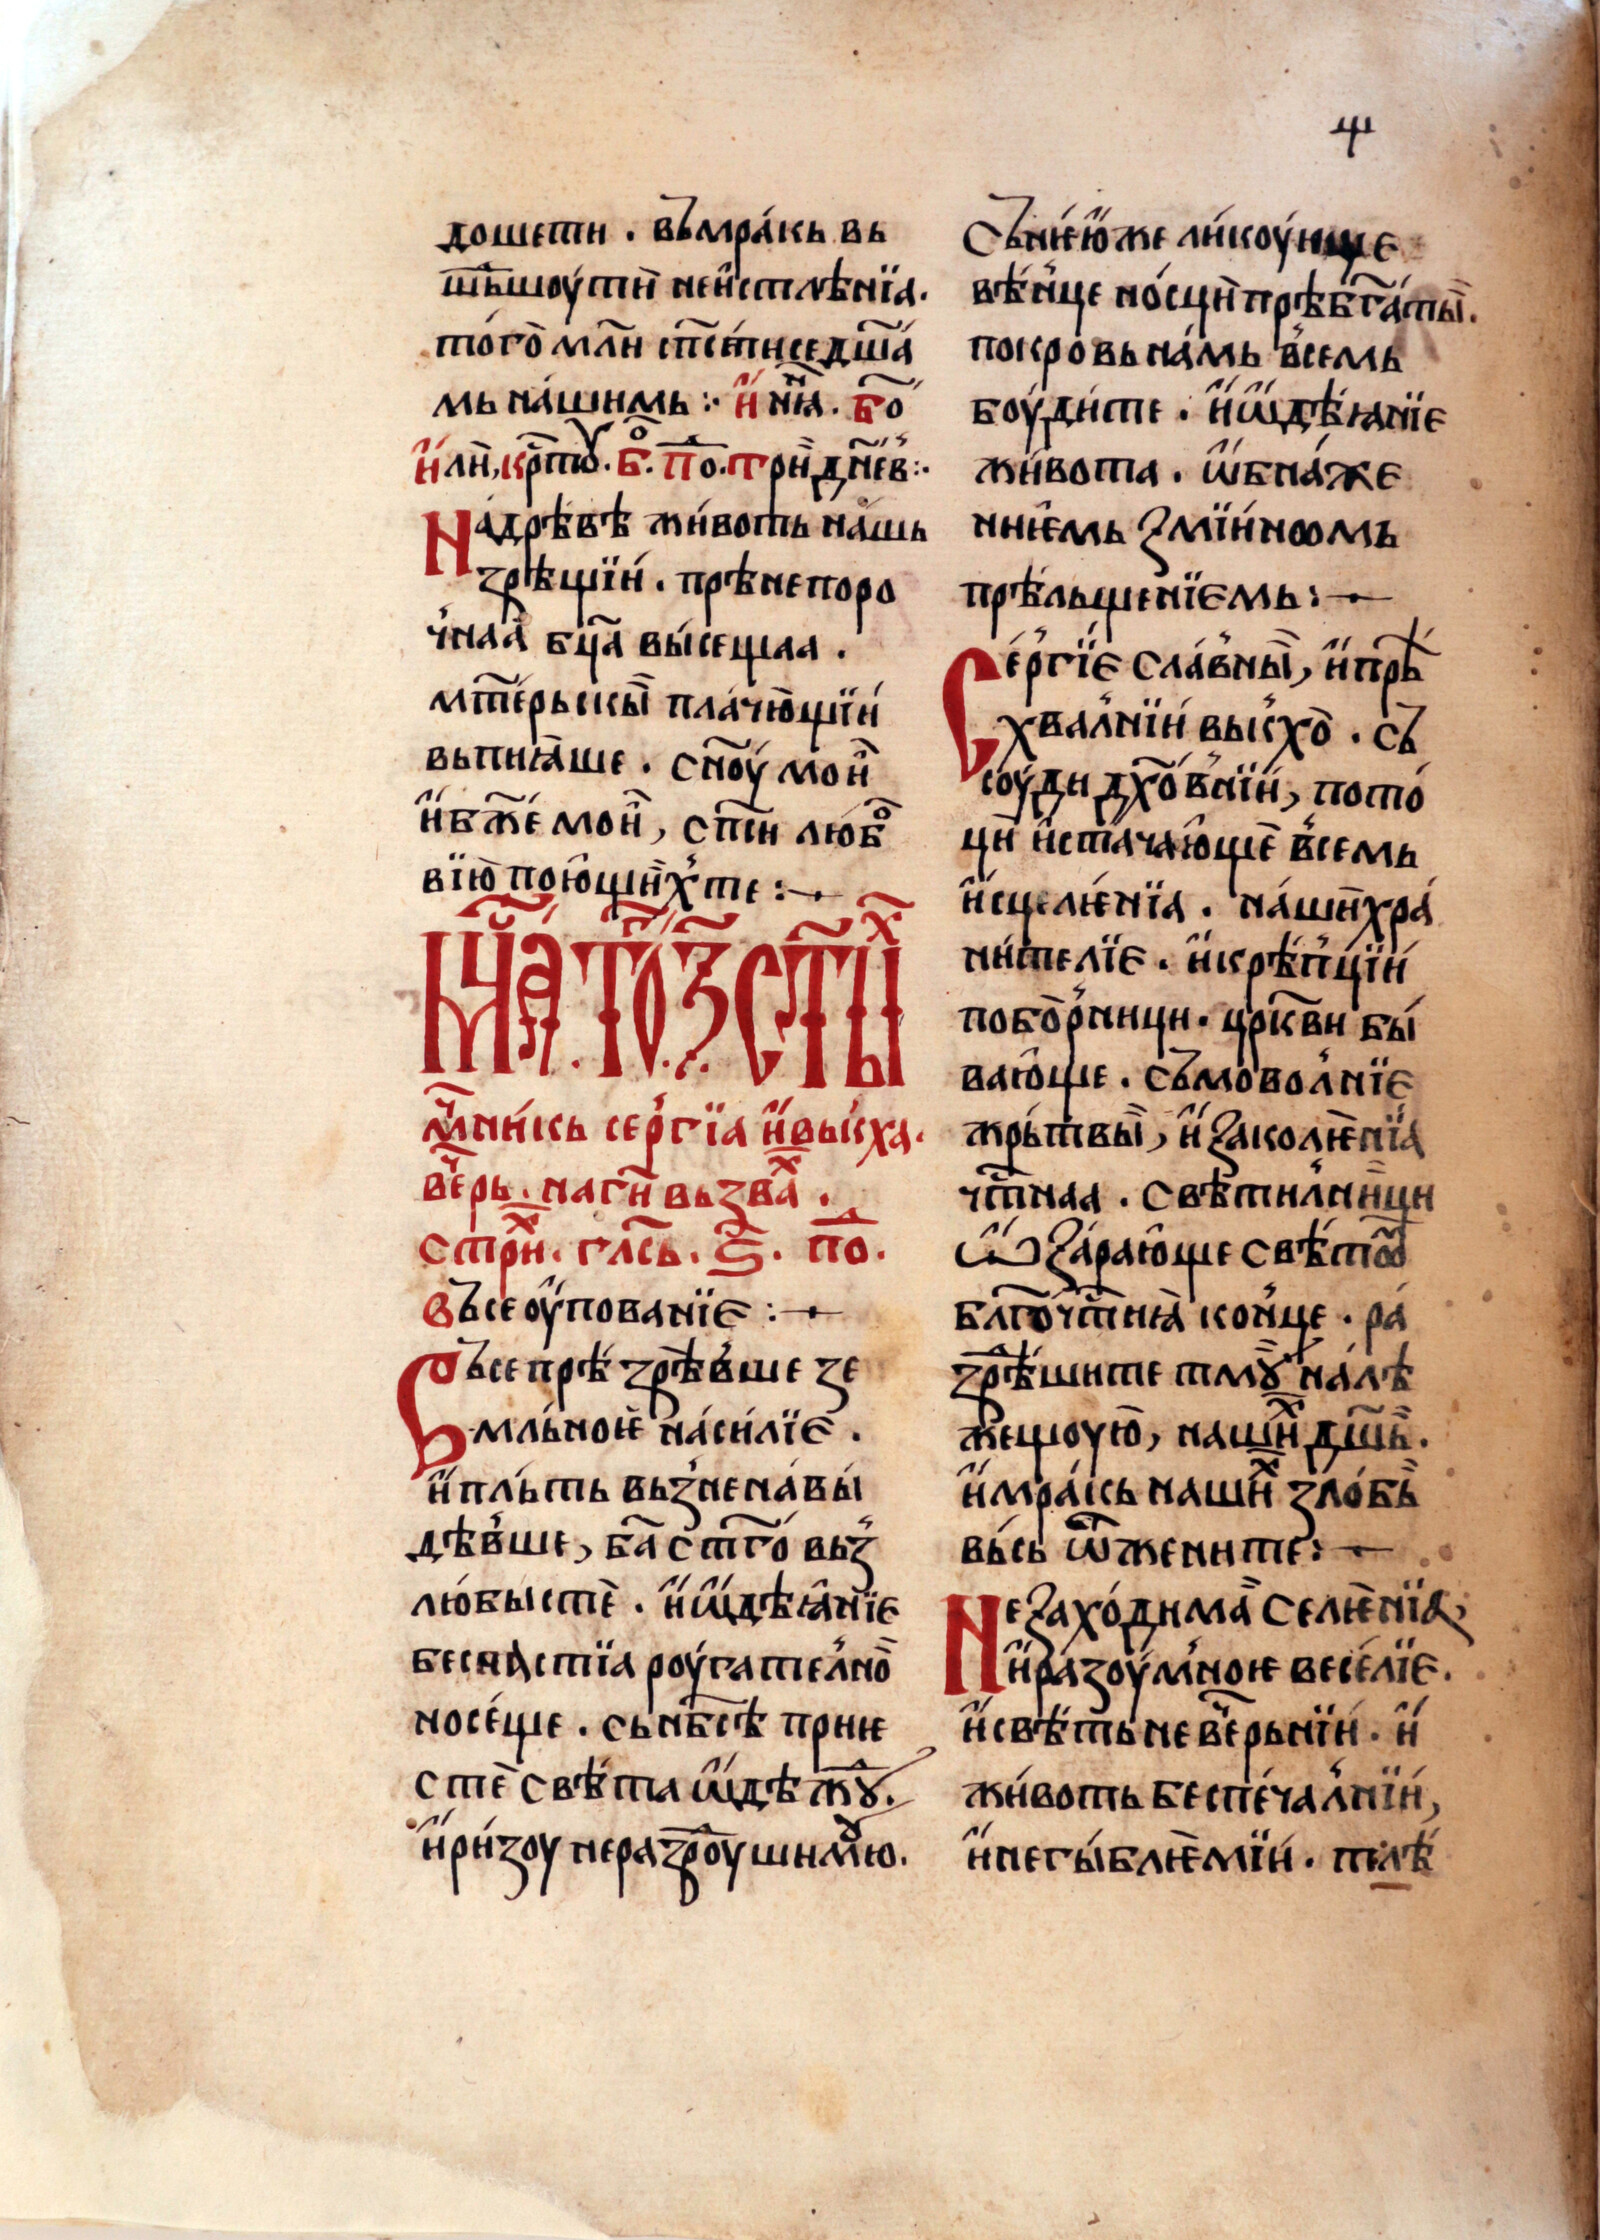 ч
дошети . въмра́кь вь
ть̑шоу́ тѝи неи̑стлѣ́нїа.
то́го̀ мл҃и сп҃се́тисе дш҃а́
мь на́шимь :· и҆ нн҃ꙗ̀ . бо҃
и҆лѝ, крⷭ҇тоу. б҃. по. трѝдн҃ев :·
На дрѣ́вѣ живо́ть на́шь
зре́щїи . прѣ́непоро
ч́наа̀ бц҃а вы́сещаа .
мт҃ерьскы̀ пла́чю̀щїи
вьпиꙗ́ше . сн҃оу́ мои҆
и҆ бж҃е мои҆, сп҃си лю́бо
вїю̀ пою̑щи̏х те : —
Мцⷭ҇а . то . з҃ . ст҃ы
мⷱ҇ни́кь се́ргїа и҆ ва́кха .
вч҃ерь . на гѝ вьзвⷯа .
стрⷯи . гла́сь . ѕ҃ . по .
въсе оу҆пова́нїе : —
Въсе прѣ́зрѣ́вше зе
мльноѐ наси́лїе .
и҆ пль́ть вьз́нена́вы́
дѣ́вше, ба҃ ст҃го вьз́
лю́бы́стѐ . и҆ ѡ҆дѣꙗ́нїе
бесча́стїа роуга́тел́но̀
носе́ще . сь нб҃се прие
стѐ свѣ́та ѡ҆дѣжꙋ.
и҆ ри́зоу неразроу́шимꙋю.
Съ ни́ѥю же ликоу́юще
вѣ́н́це но́сцѝ прѣ́бга҃ты̀.
покро́вь на́мь в́семь
боуди́те . и҆ ѡ҆дѣꙗ́нїе
живота̀ . ѡ҆бна́же
ниѥ́мь змїи́ноомь
прѣ́льщенїемь : —
Се́ргїе сла́вны̀, и҆ прѣ
хвал́нїи вы́кхо̀ . съ
соу́ди дх҃о́в́нїи, пото́
цѝ и҆ста́чаю̑щѐ в́семь
и҆сцеле́нїа . на́шѝ хра́
ни́телїе . и҆ крѣ́п́цїи
побо̀р́ници . црк҃ви бы́
ваю̑ще . съмоволнїе
жрь́твы̀, и҆ заколе́нїа
чт҃наа . свѣ́тилнѝци
ѡ҆зараю̑ще свѣ́томь
блг҃очт҃ниꙗ̀ кон́це . ра́
зрѣ́шите тмꙋ̀ на́лѣ
жещоую̀, нашиⷯ дш҃ь .
и҆ мра́кь нашиⷯ зло́бь
вы́сь ѿжени́те : —
Незахо́дима̀ селе́нїа,
и҆ разоу́м́ное весе́лїе .
и҆ свѣ́ть невечерьнїи . и҆
живо́ть беспеча́л́нїи,
и҆ негы́блѥмїи . тѣлѣ́